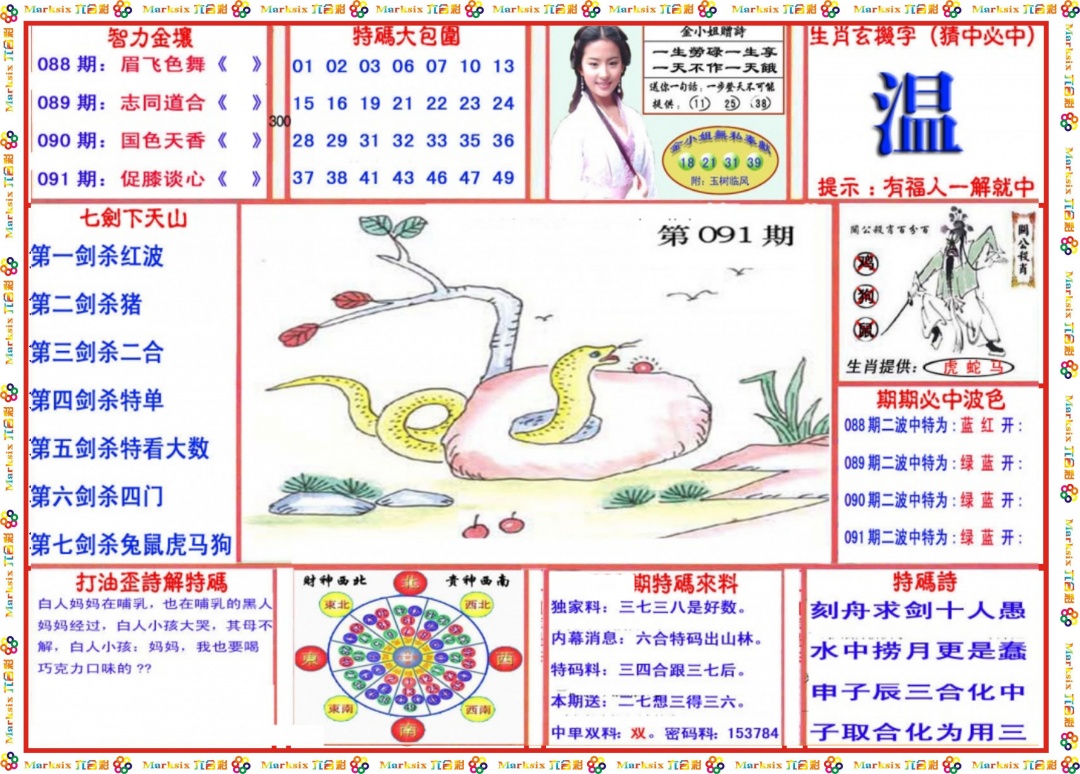 Marksix 六合彩
智力金壤
088 期：眉飞色舞《 》
089 期：志同道合《 》
090 期：国色天香《 》
091 期：促膝谈心《 》
300
特碼大包圍
01 02 03 06 07 10 13
15 16 19 21 22 23 24
28 29 31 32 33 35 36
37 38 41 43 46 47 49
金小姐赠詩
一生勞碌一生享
一天不作一天餓
送你一句話：一步登天不可能
提供：11 25 38
金小姐無私奉獻
18 21 31 39
附：玉树临风
生肖玄機字（猜中必中）
温
提示：有福人一解就中
七劍下天山
第一剑杀红波
第二剑杀猪
第三剑杀二合
第四剑杀特单
第五剑杀特看大数
第六剑杀四门
第七剑杀兔鼠虎马狗
第 091 期
關公殺肖百分百
關公殺肖
鸡
狗
鼠
生肖提供：虎 蛇 马
期期必中波色
088 期二波中特为：蓝 红 开：
089 期二波中特为：绿 蓝 开：
090 期二波中特为：绿 蓝 开：
091 期二波中特为：绿 蓝 开：
打油歪詩解特碼
白人妈妈在哺乳，也在哺乳的黑人
妈妈经过，白人小孩大哭，其母不
解，白人小孩：妈妈，我也要喝
巧克力口味的 ??
财神西北
貴神西南
北
東北
西北
東
西
東南
西南
南
期特碼來料
独家料：三七三八是好数。
内幕消息：六合特码出山林。
特码料：三四合跟三七后。
本期送：二七想三得三六。
中单双料：双。密码料：153784
特碼詩
刻舟求剑十人愚
水中捞月更是蠢
申子辰三合化中
子取合化为用三